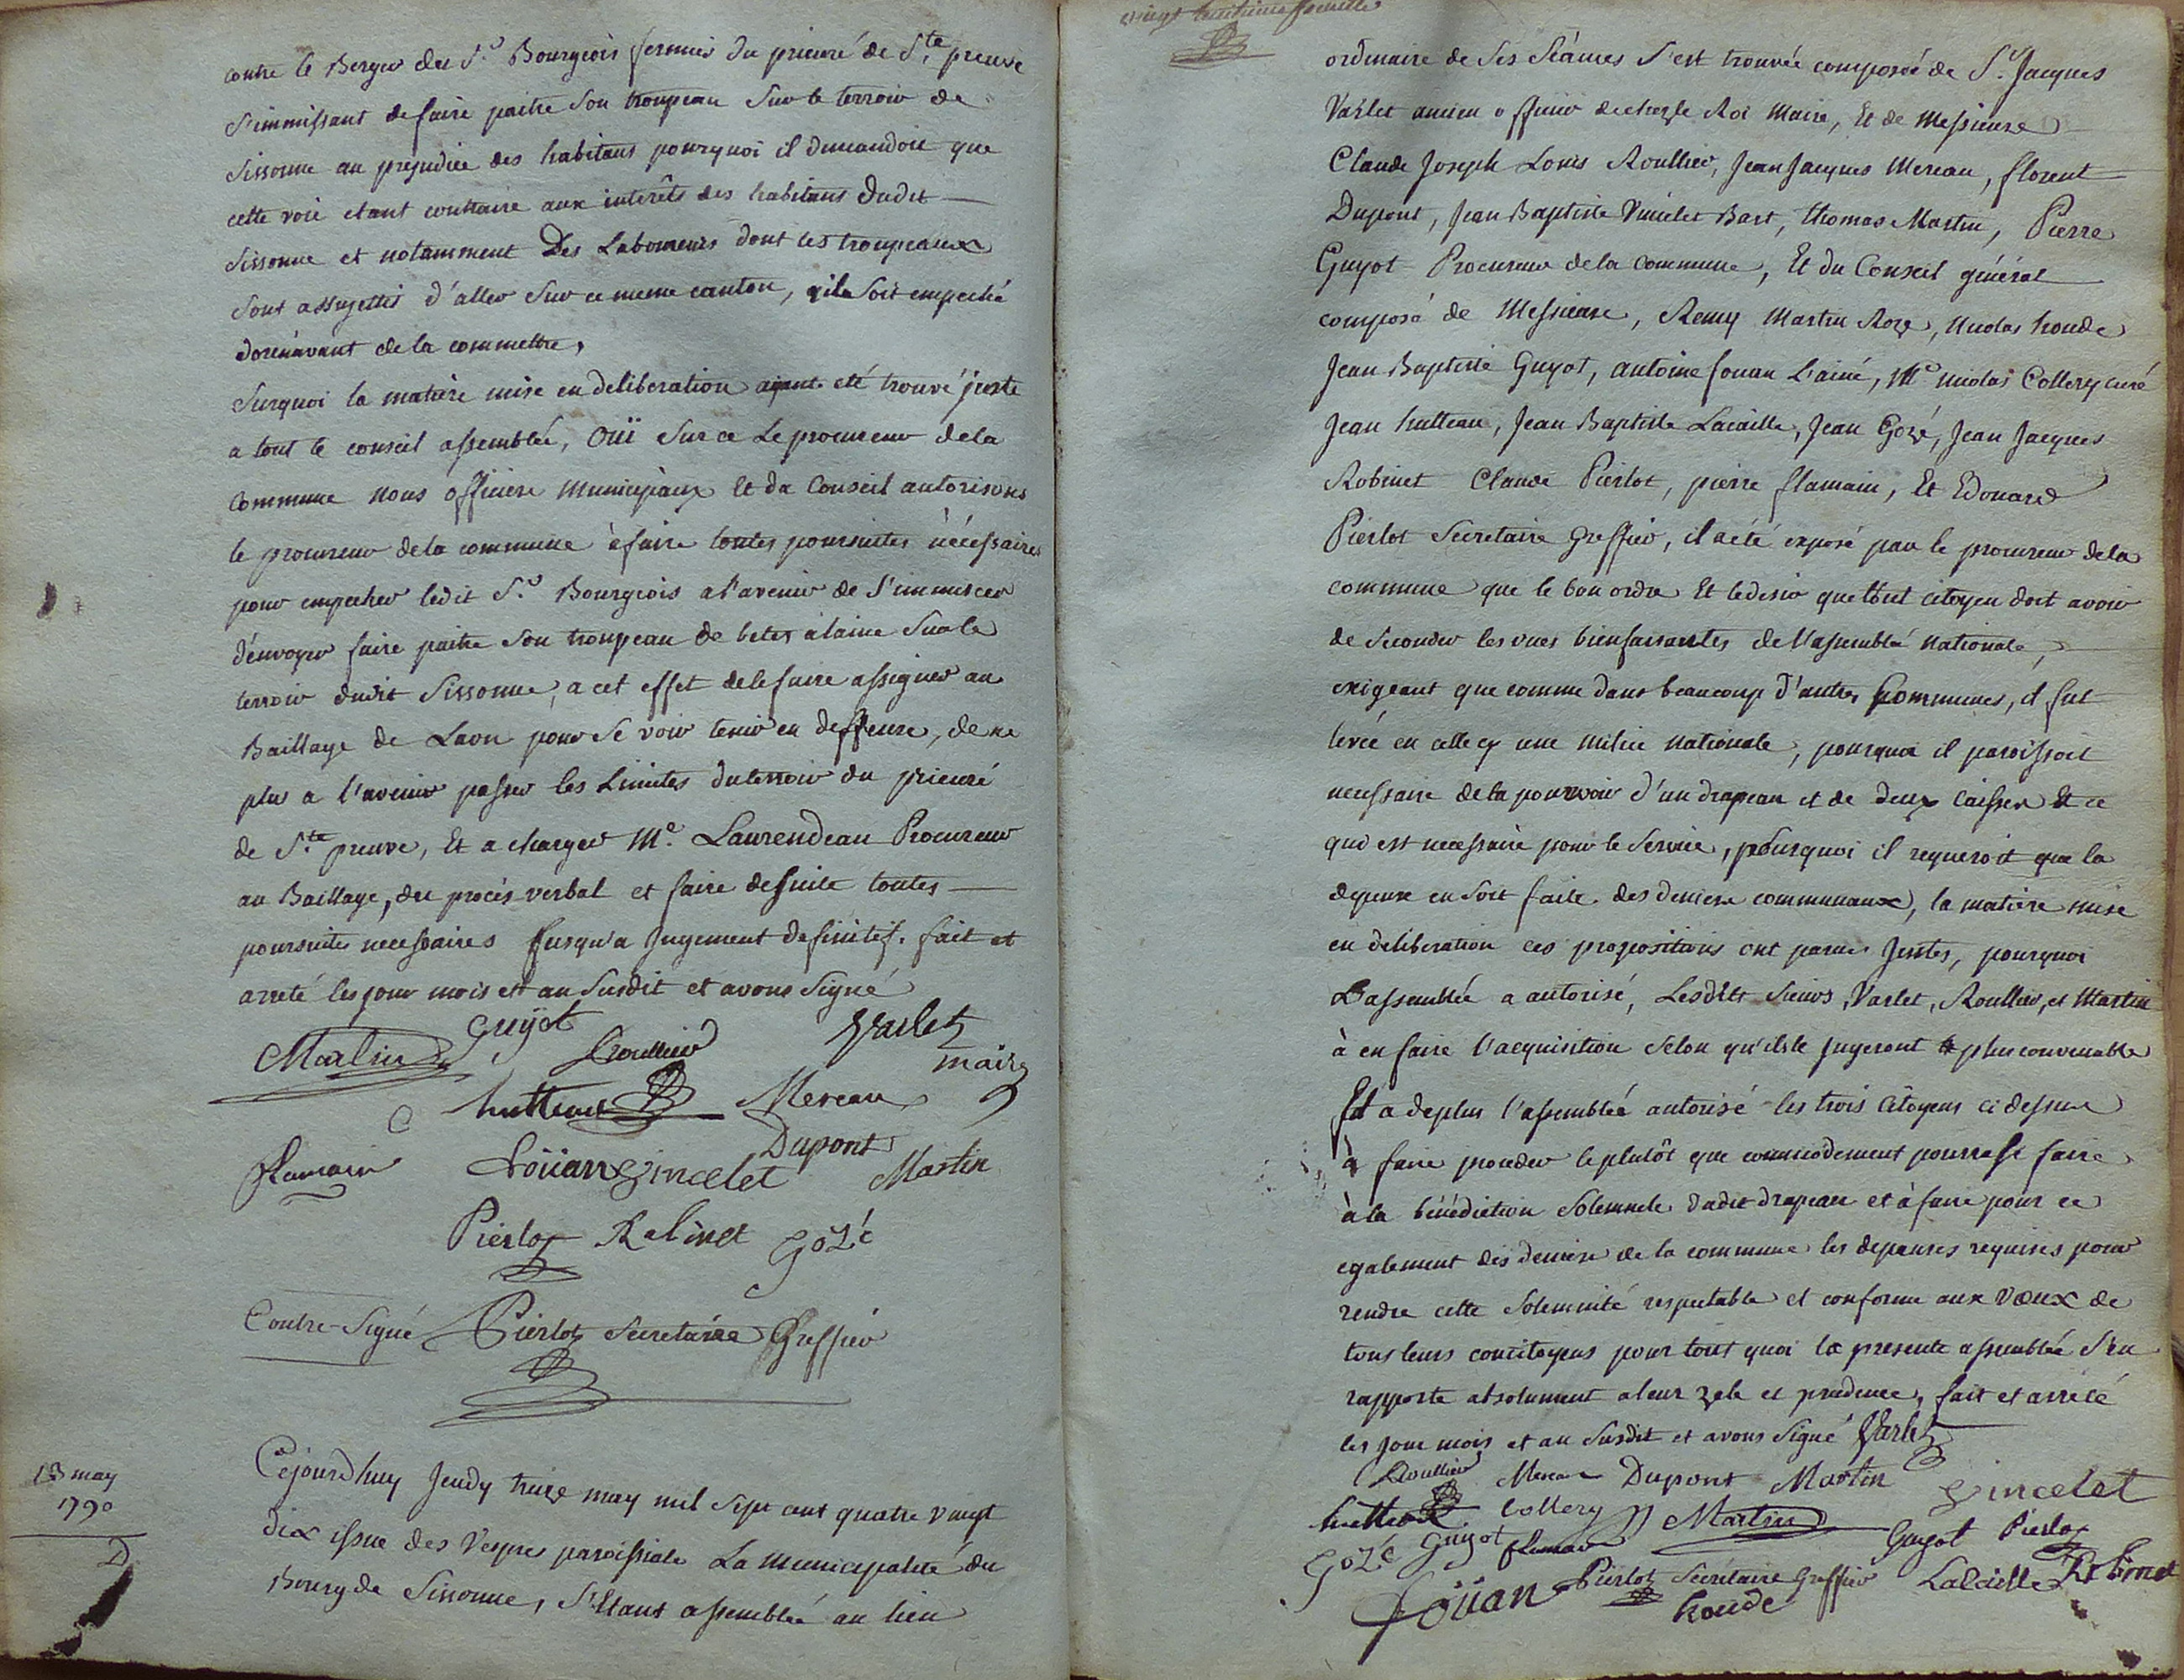 contre le Berger du S.r Bourgeois fermier du prieuré de S.te preuve
s'immissant de faire paitre son troupeau sur le terroir de
Sissonne au prejudice des habitans pourquoi il demandoit que
cette voie etant contraire aux interêts des habitans dudit
Sissonne et notamment Des Laboureurs dont les troupeaux
sont assujettis d'aller sur ce meme canton, qil soit empeché
dorenavant de la commettre,
Surquoi la matière mise en deliberation ajant eté trouvé juste
a tout le conseil assemblée, Oüi sur ce Le procureur de la
Commune nous officiers Municipaux Et du Conseil autorisons
le procureur de la commune à faire toutes poursuites nécéssaires
pour empecher ledit S.r Bourgeois a l'avenir de S'immiscer
d'envoyer faire paitre son troupeau de betes a laine sur le
terroir dudit Sissonne, a cet effet de le faire assigner au
Baillage de Laon pour se voir tenir en deffense, de ne
plus a l'avenir passer les Limites du terroir du prieuré
de S.te preuve, Et a charger M.e Laurendeau Procureur
au Baillage, du procès verbal et faire de suite toutes
poursuites necessaires Jusqu'a Jugement definitif. fait et
arreté les jour mois et an susdit et avons Signé
Martin Guÿot Roullier Varlet
maire
hutteau Mereau
Dupont
flamain foüan Vincelet Martin
Pierlot Robinet gozé
Contre-Signé Pierlot Secretaire Greffier
13 may
1790
Cejourd'huy Jeudy treize may mil sept cent quatre vingt
dix issue des Vespres paroissiale La Municipalité du
Bourg de Sissonne, S'Etant assemblée au lieu
vingt huitieme feuille
ordinaire de ses Séances S'est trouvée composée de S.r Jacques
Varlet ancien officier de chez le Roi Maire, Et de Messieurs
Claude Joseph Louis Roullier, Jean Jacques Mereau, florent
Dupont, Jean Baptiste Vincelet Bart, thomas Martin, Pierre
Guyot Procureur de la Commune, Et du Conseil général
composé de Messieurs, Remy Martin Roze, Nicolas houde
Jean Baptiste Guyot, antoine fouan L'ainé, M.e nicolas Collery curé
Jean hutteau, Jean Baptiste Lacaille, Jean Gozé, Jean Jacques
Robinet Claude Pierlot, pierre flamain, Et Edouard
Pierlot Secretaire Greffier, il a été exposé par le procureur de la
commune que le bon ordre Et le desir que tout citoyen doit avoir
de seconder les vues bienfaisantes de l'assemblée nationale,
exigeant que comme dans beaucoup d'autres Communes, il fut
levée en celle cy une milice nationale, pourquoi il paroissoit
necessaire de la pourvoir d'un drapeau et de deux caisses Et ce
qui est necessaire pour le Service, pourquoi il requeroit que la
depense en soit faite des deniers communaux, la matiere mise
en deliberation ces propositions ont parues Justes, pourquoi
L'assemblée a autorisé, Lesdits Sieurs, Varlet, Roullier, et Martin
à en faire l'acquisition Selon qu'ils le Jugeront plus convenable
Et a de plus l'assemblée autorisé les trois Citoyens ci dessus
à faire proceder le plutôt que commodement pourra se faire
à la bénédiction Solemnele dudit drapeau et à faire pour ce
egalement des deniers de la commune les depenses requises pour
rendre cette Solemnité respectable et conforme aux Vœux de
tous leurs concitoyens pour tout quoi la presente assemblée s'en
rapporte absolument a leur zele et prudence, fait et arrêté
les jour mois et an susdit et avons signé Varlet
Roullier Mereau Dupont Martin Vincelet
hutteau Collery Martin Guyot Pierlot
gozé Guyot flamain
foüan Pierlot Secrétaire Greffier Lacaille Robinet
houde